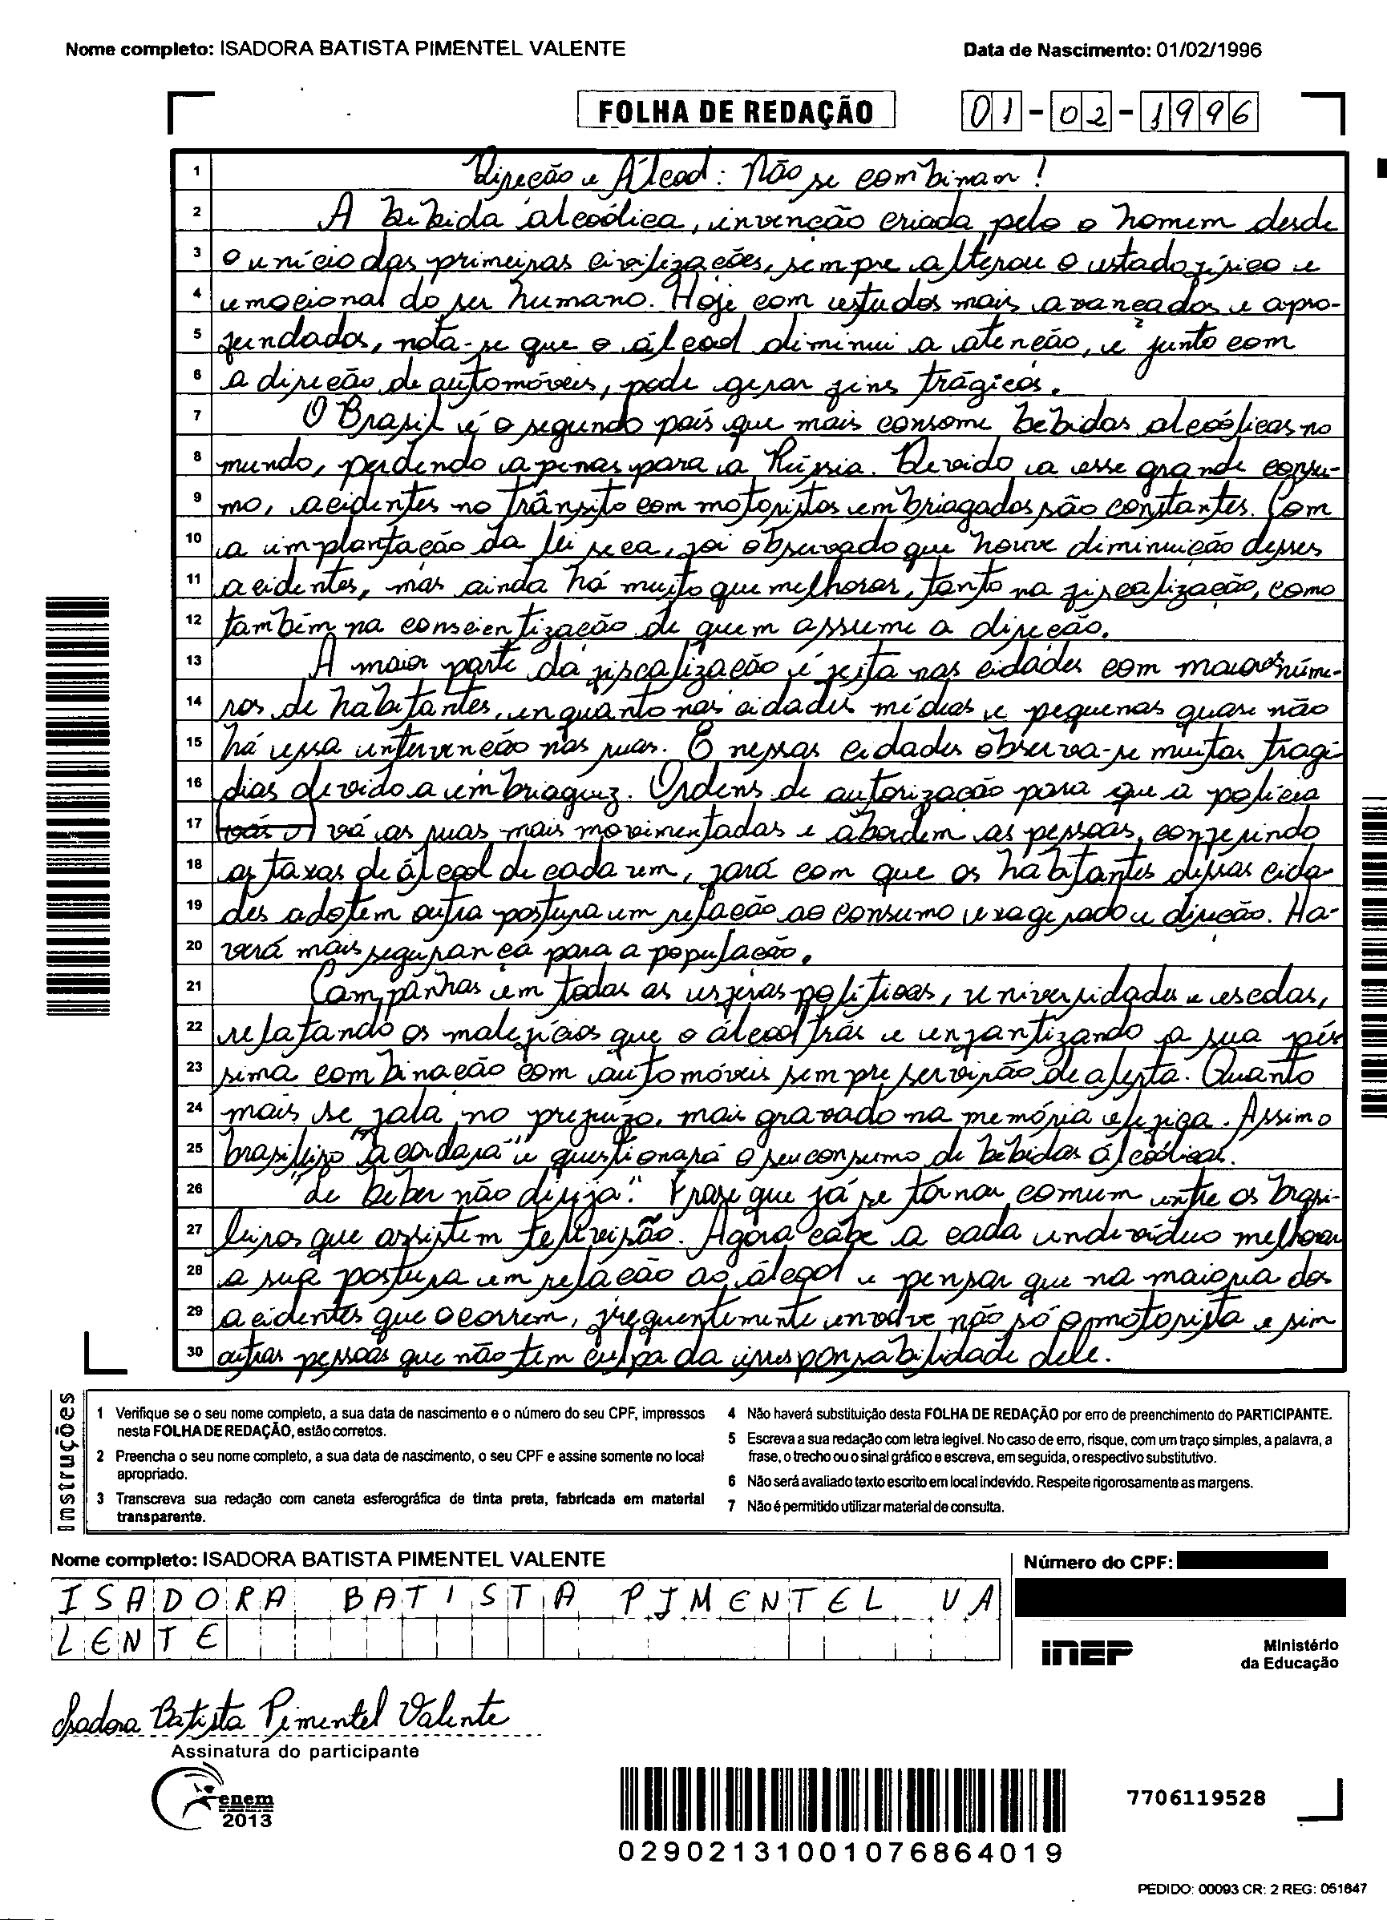 Nome completo: ISADORA BATISTA PIMENTEL VALENTE Data de Nascimento: 01/02/1996
FOLHA DE REDAÇÃO 01-02-1996
1 Direção e Álcool: Não se combinam!
2 A bebida alcoólica, invenção criada pelo o homem desde
3 o início das primeiras civilizações, sempre alterou o estado físico e
4 emocional do ser humano. Hoje com estudos mais avançados e apro-
5 fundados, nota-se que o álcool diminui a atenção, e junto com
6 a direção de automóveis, pode gerar fins trágicos.
7 O Brasil é o segundo país que mais consome bebidas alcoólicas no
8 mundo, perdendo apenas para a Rússia. Devido a esse grande consu-
9 mo, acidentes no trânsito com motoristas embriagados são constantes. Com
10 a implantação da lei seca, foi observado que houve diminuição desses
11 acidentes, mas ainda há muito que melhorar, tanto na fiscalização, como
12 também na conscientização de quem assume a direção.
13 A maior parte da fiscalização é feita nas cidades com maiores núme-
14 ros de habitantes, enquanto nas cidades médias e pequenas quase não
15 há essa intervenção nas ruas. E nessas cidades observa-se muitas tragé-
16 dias devido a embriaguez. Ordens de autorização para que a polícia
17 vá as ruas mais movimentadas e abordem as pessoas, conferindo
18 as taxas de álcool de cada um, fará com que os habitantes dessas cida-
19 des adotem outra postura em relação ao consumo exagerado e direção. Ha-
20 verá mais segurança para a população.
21 Campanhas em todas as esferas políticas, universidades e escolas,
22 relatando os malefícios que o álcool trás e enfantizando a sua pés
23 sima combinação com automóveis sempre servirão de alerta. Quanto
24 mais se fala no prejuízo, mais gravado na memória ele fica. Assim o
25 brasileiro "acordará" e questionará o seu consumo de bebidas alcóolicas.
26 "de beber não dirija". Frase que já se tornou comum entre os brasi-
27 leiros que assistem televisão. Agora cabe a cada indivíduo melhorar
28 a sua postura em relação ao álcool e pensar que na maioria dos
29 acidentes que ocorrem, frequentemente envolve não só o motorista e sim
30 outras pessoas que não tem culpa da irresponsabilidade dele.
Instruções
1 Verifique se o seu nome completo, a sua data de nascimento e o número do seu CPF, impressos
nesta FOLHA DE REDAÇÃO, estão corretos.
2 Preencha o seu nome completo, a sua data de nascimento, o seu CPF e assine somente no local
apropriado.
3 Transcreva sua redação com caneta esferográfica de tinta preta, fabricada em material
transparente.
4 Não haverá substituição desta FOLHA DE REDAÇÃO por erro de preenchimento do PARTICIPANTE.
5 Escreva a sua redação com letra legível. No caso de erro, risque, com um traço simples, a palavra, a
frase, o trecho ou o sinal gráfico e escreva, em seguida, o respectivo substitutivo.
6 Não será avaliado texto escrito em local indevido. Respeite rigorosamente as margens.
7 Não é permitido utilizar material de consulta.
Nome completo: ISADORA BATISTA PIMENTEL VALENTE Número do CPF:
ISADORA BATISTA PIMENTEL VA
LENTE
inep Ministério
da Educação
Isadora Batista Pimentel Valente
Assinatura do participante
enem
2013
7706119528
029021310010768640 19
PEDIDO: 00093 CR: 2 REG: 051647